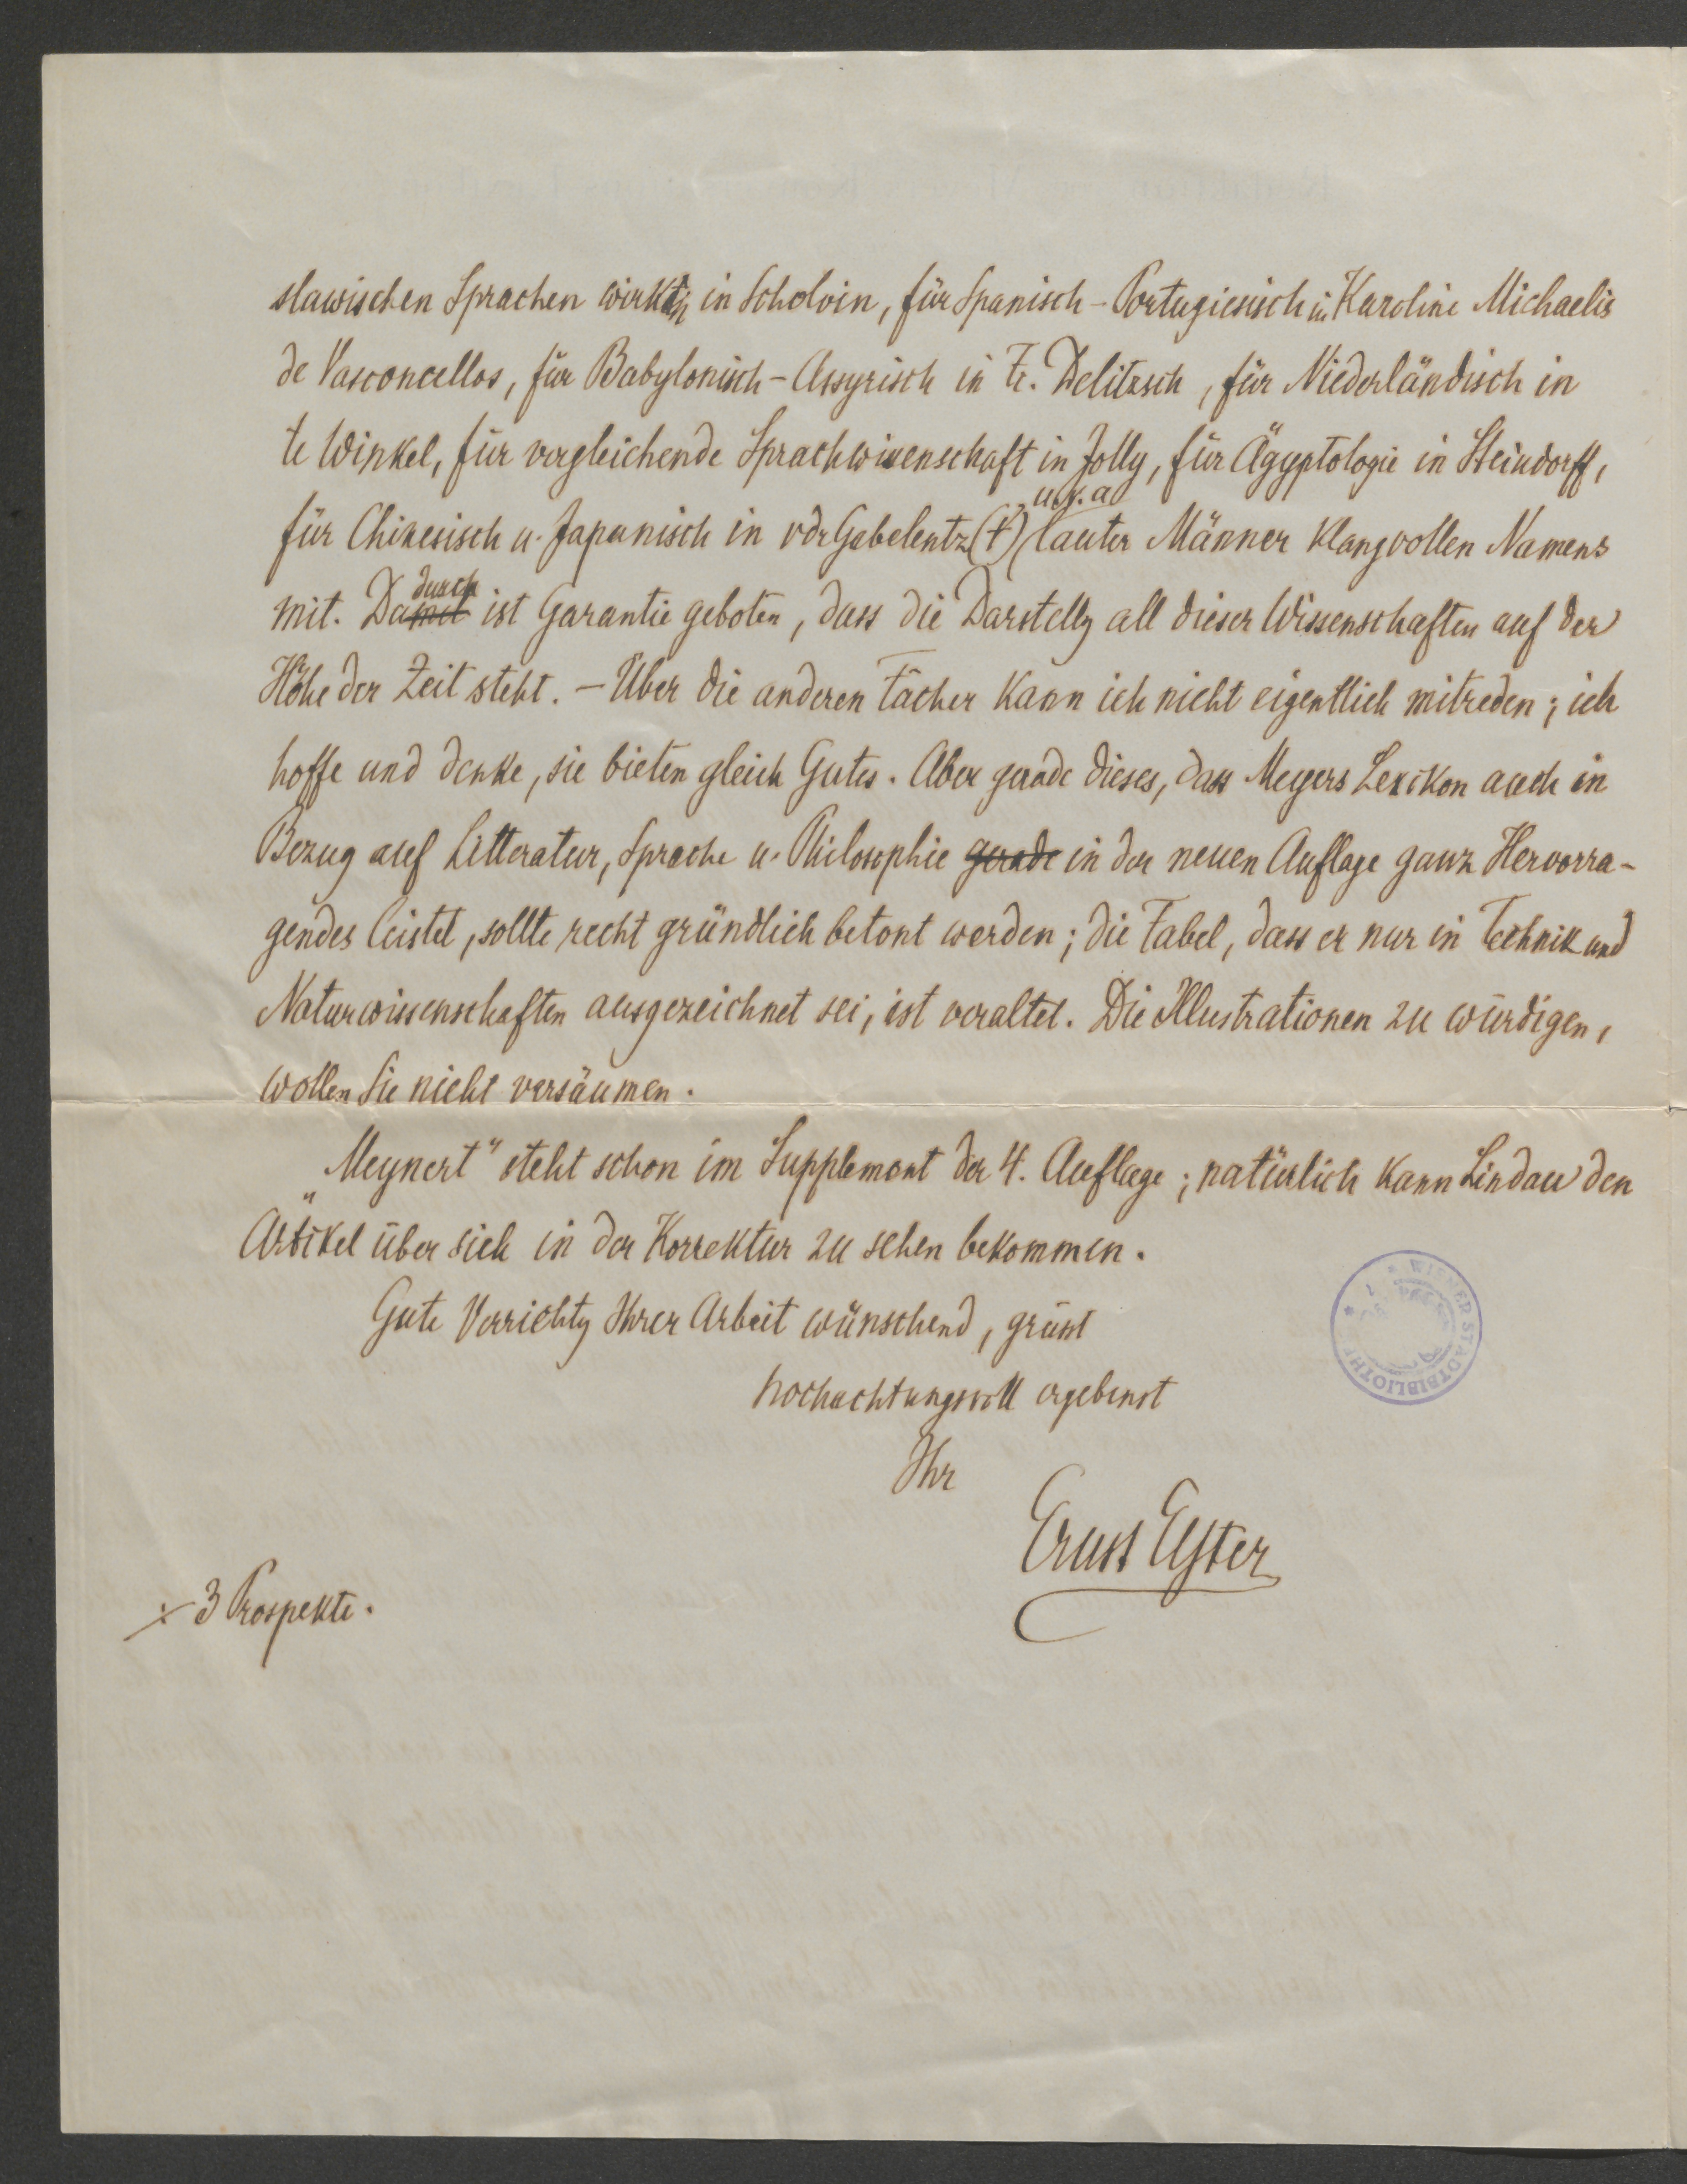 slawischen Sprachen wirkten in Scholvin, für Spanisch-Portugiesisch in Karoline Michaelis
de Vasconcellos, für Babylonisch-Assyrisch in Fr. Delitzsch, für Niederländisch in
te Winkel, für vergleichende Sprachwissenschaft in Jolly, für Ägyptologie in Steindorff,
u.v.a
für Chinesisch u. Japanisch in vdrGabelentz (†) lauter Männer klangvollen Namens
durch
mit. Damit ist Garantie geboten, dass die Darstellg all dieser Wissenschaften auf der
Höhe der Zeit steht. – Über die anderen Fächer kann ich nicht eigentlich mitreden; ich
hoffe und denke, sie bieten gleich Gutes. Aber gerade dieses, dass Meyers Lexikon auch in
Bezug auf Litteratur, Sprache u. Philosophie gerade in der neuen Auflage ganz Hervorra-
gendes leistet, sollte recht gründlich betont werden; die Fabel, dass er nur in Technik und
Naturwissenschaften ausgezeichnet sei, ist veraltet. Die Illustrationen zu würdigen,
wollen Sie nicht versäumen.
„Meynert" steht schon im Supplement der 4. Auflage; natürlich kann Lindau den
Artikel über sich in der Korrektur zu sehen bekommen.
Gute Verrichtg Ihrer Arbeit wünschend, grüsst
hochachtungsvoll ergebenst
Ihr
Ernst Elster
3 Prospekte.
WIENER STADTBIBLIOTH